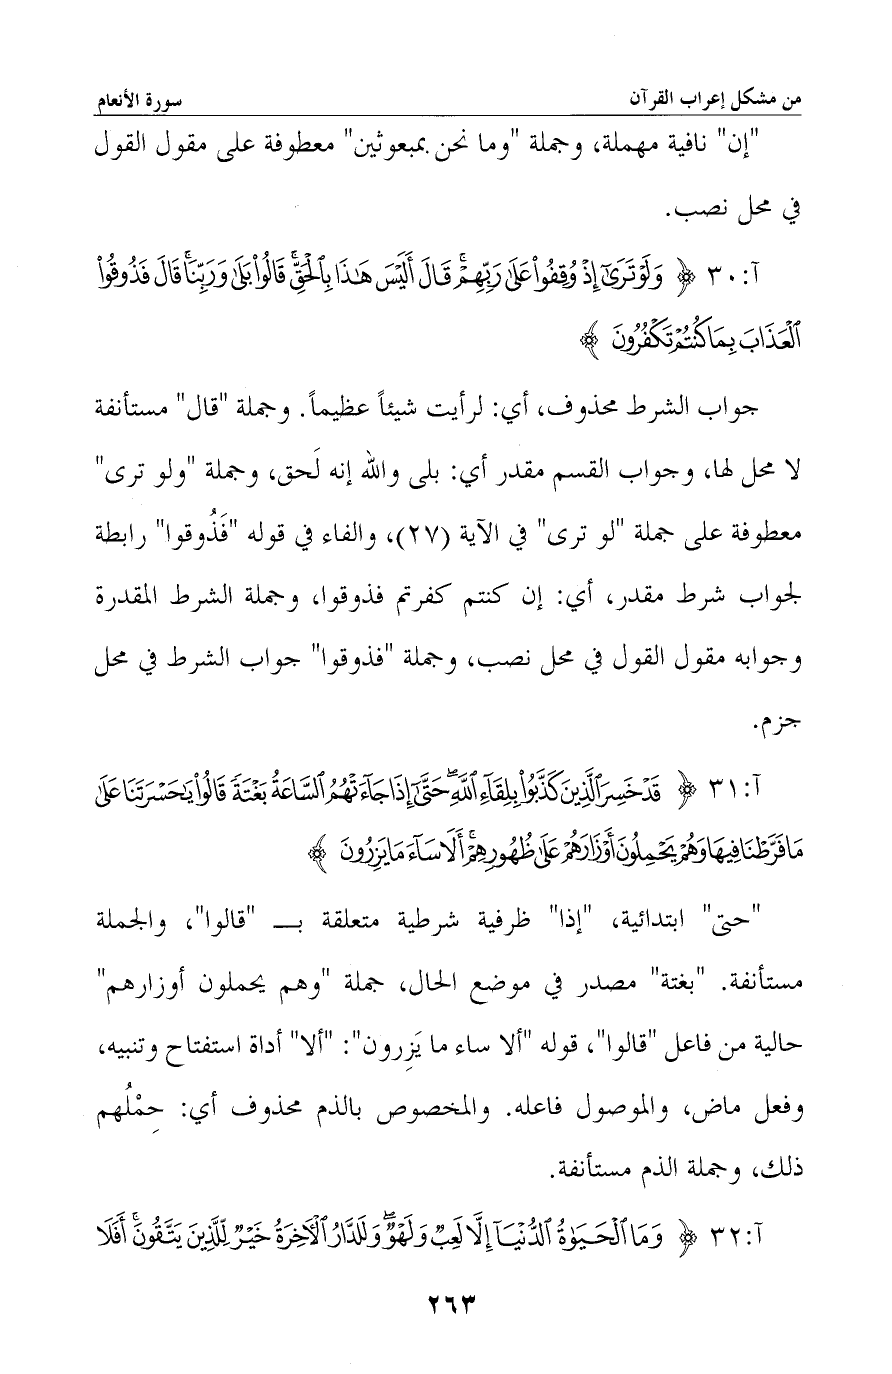 من مشكل إعراب القرآن سورة الأنعام
"إن" نافية مهملة، وجملة "وما نحن بمبعوثين" معطوفة على مقول القول
في محل نصب.
آ:٣٠ ﴿ وَلَوْ تَرَىٰٓ إِذْ وُقِفُوا۟ عَلَىٰ رَبِّهِمْ ۚ قَالَ أَلَيْسَ هَٰذَا بِٱلْحَقِّ ۚ قَالُوا۟ بَلَىٰ وَرَبِّنَا ۚ قَالَ فَذُوقُوا۟
ٱلْعَذَابَ بِمَا كُنتُمْ تَكْفُرُونَ ﴾
جواب الشرط محذوف، أي: لرأيت شيئاً عظيماً. وجملة "قال" مستأنفة
لا محل لها، وجواب القسم مقدر أي: بلى والله إنه لَحق، وجملة "ولو ترى"
معطوفة على جملة "لو ترى" في الآية (٢٧)، والفاء في قوله "فَذُوقوا" رابطة
لجواب شرط مقدر، أي: إن كنتم كفرتم فذوقوا، وجملة الشرط المقدرة
وجوابه مقول القول في محل نصب، وجملة "فذوقوا" جواب الشرط في محل
جزم.
آ:٣١ ﴿ قَدْ خَسِرَ ٱلَّذِينَ كَذَّبُوا۟ بِلِقَآءِ ٱللَّهِ ۖ حَتَّىٰٓ إِذَا جَآءَتْهُمُ ٱلسَّاعَةُ بَغْتَةً قَالُوا۟ يَٰحَسْرَتَنَا عَلَىٰ
مَا فَرَّطْنَا فِيهَا وَهُمْ يَحْمِلُونَ أَوْزَارَهُمْ عَلَىٰ ظُهُورِهِمْ ۚ أَلَا سَآءَ مَا يَزِرُونَ ﴾
"حتى" ابتدائية، "إذا" ظرفية شرطية متعلقة بـ "قالوا"، والجملة
مستأنفة. "بغتة" مصدر في موضع الحال، جملة "وهم يحملون أوزارهم"
حالية من فاعل "قالوا"، قوله "ألا ساء ما يَزِرون": "ألا" أداة استفتاح وتنبيه،
وفعل ماض، والموصول فاعله. والمخصوص بالذم محذوف أي: حِمْلُهم
ذلك، وجملة الذم مستأنفة.
آ:٣٢ ﴿ وَمَا ٱلْحَيَوٰةُ ٱلدُّنْيَآ إِلَّا لَعِبٌ وَلَهْوٌ ۖ وَلَلدَّارُ ٱلْءَاخِرَةُ خَيْرٌ لِّلَّذِينَ يَتَّقُونَ ۗ أَفَلَا
٢٦٣